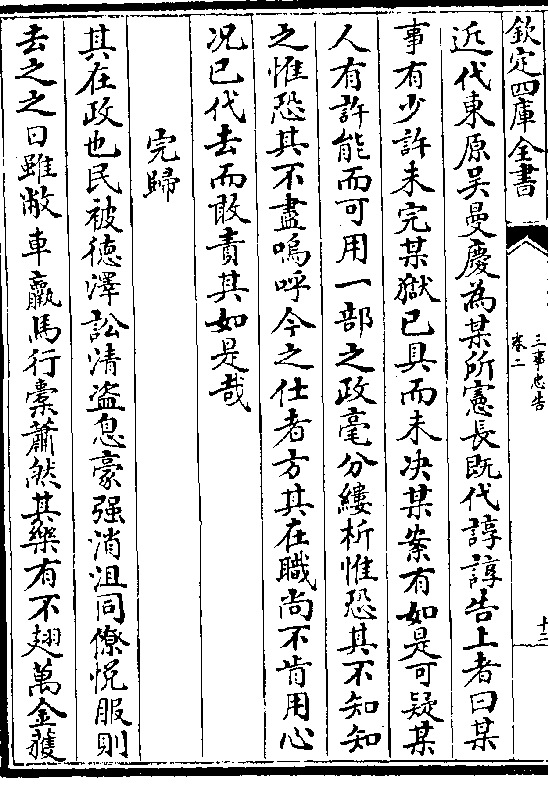 欽定四庫全書
三事忠告
卷二
十三
近代東原吴曼慶為某所憲長既代諄諄告上者曰某
事有少許未完某獄已具而未决某案有如是可疑某
人有許能而可用一部之政毫分縷析惟恐其不知知
之惟恐其不盡嗚呼今之仕者方其在職尚不肯用心
况已代去而敢責其如是哉
完歸
其在政也民被德澤訟清盜息豪强消沮同僚悦服則
去之之日雖敝車羸馬行橐蕭然其樂有不翅萬金䕶